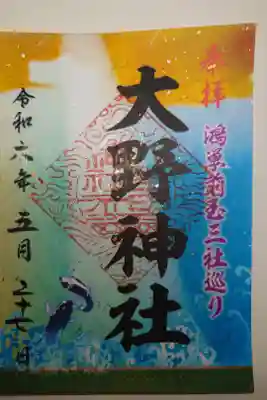 奉拝
鴻巣前玉三社巡り
大野神社
令和六年五月二十七日